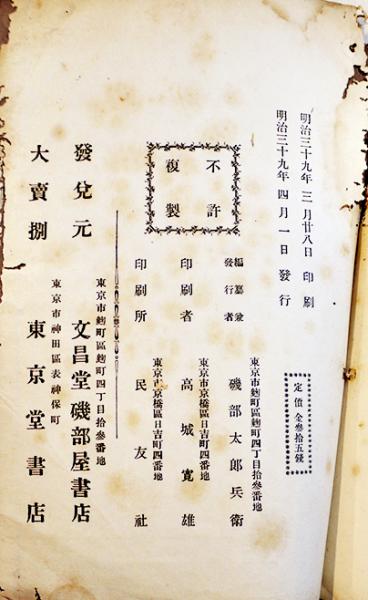 明治三十九年三月廿八日印刷
明治三十九年四月一日發行
定價金參拾五錢
不許
複製
編纂兼
發行者
東京市麹町區麹町四丁目拾參番地
磯部太郎兵衛
印刷者
東京市京橋區日吉町四番地
高城寛雄
印刷所
東京市京橋區日吉町四番地
民友社
發兌元
東京市麹町區麹町四丁目拾參番地
文昌堂磯部屋書店
大賣捌
東京市神田區表神保町
東京堂書店